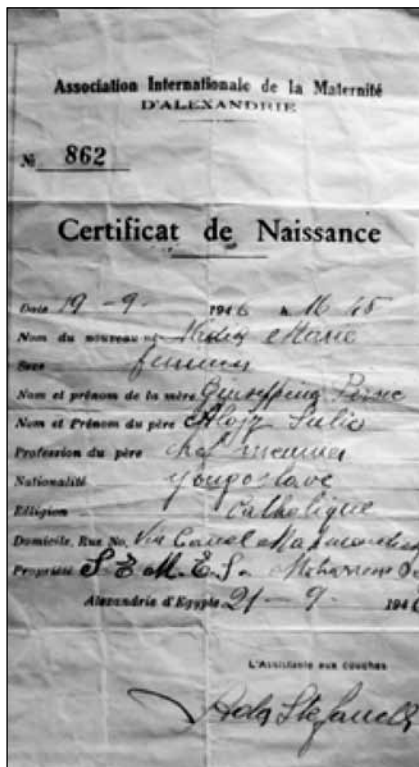 Association Internationale de la Maternité
D'ALEXANDRIE
№ 862
Certificat de Naissance
Date 19 - 9 - 1946 à 16 45
Nom du nouveau né Marie
Sexe féminin
Nom et prénom de la mère Giuseppina
Nom et Prénom du père Alojz Sulič
Profession du père chef meunier
Nationalité yougoslave
Réligion Catholique
Domicile, Rue No. Via Canal
Propriété S.E.M.E.S.
Alexandrie d'Egypte 21 - 9 1946
L'Assistante aux couches